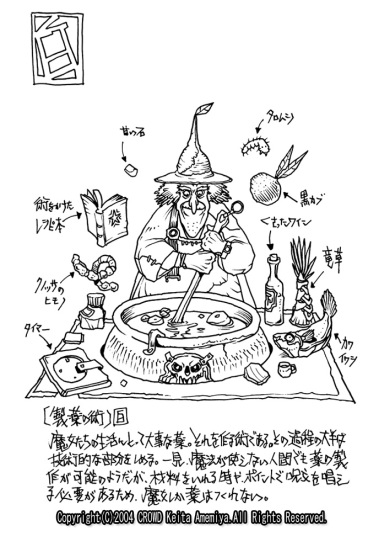 甘い石
タロムシ
黒カブ
術をかけた
レシピ本
くさったワイン
竜草
クノッサの
ヒモノ
タイマー
カワ
イワシ
［製薬の術］
魔女たちの生活にとって大事な薬。それを作る術である。その過程の大半は
技術的な部分をしめる。一見、魔法が使えない人間でも薬の製
作が可能のようだが、材料をいれる時やポイントで呪文を唱え
る必要があるため、魔女しか薬はつくれない。
Copyright(C)2004 CROWD Keita Amemiya.All Rights Reserved.